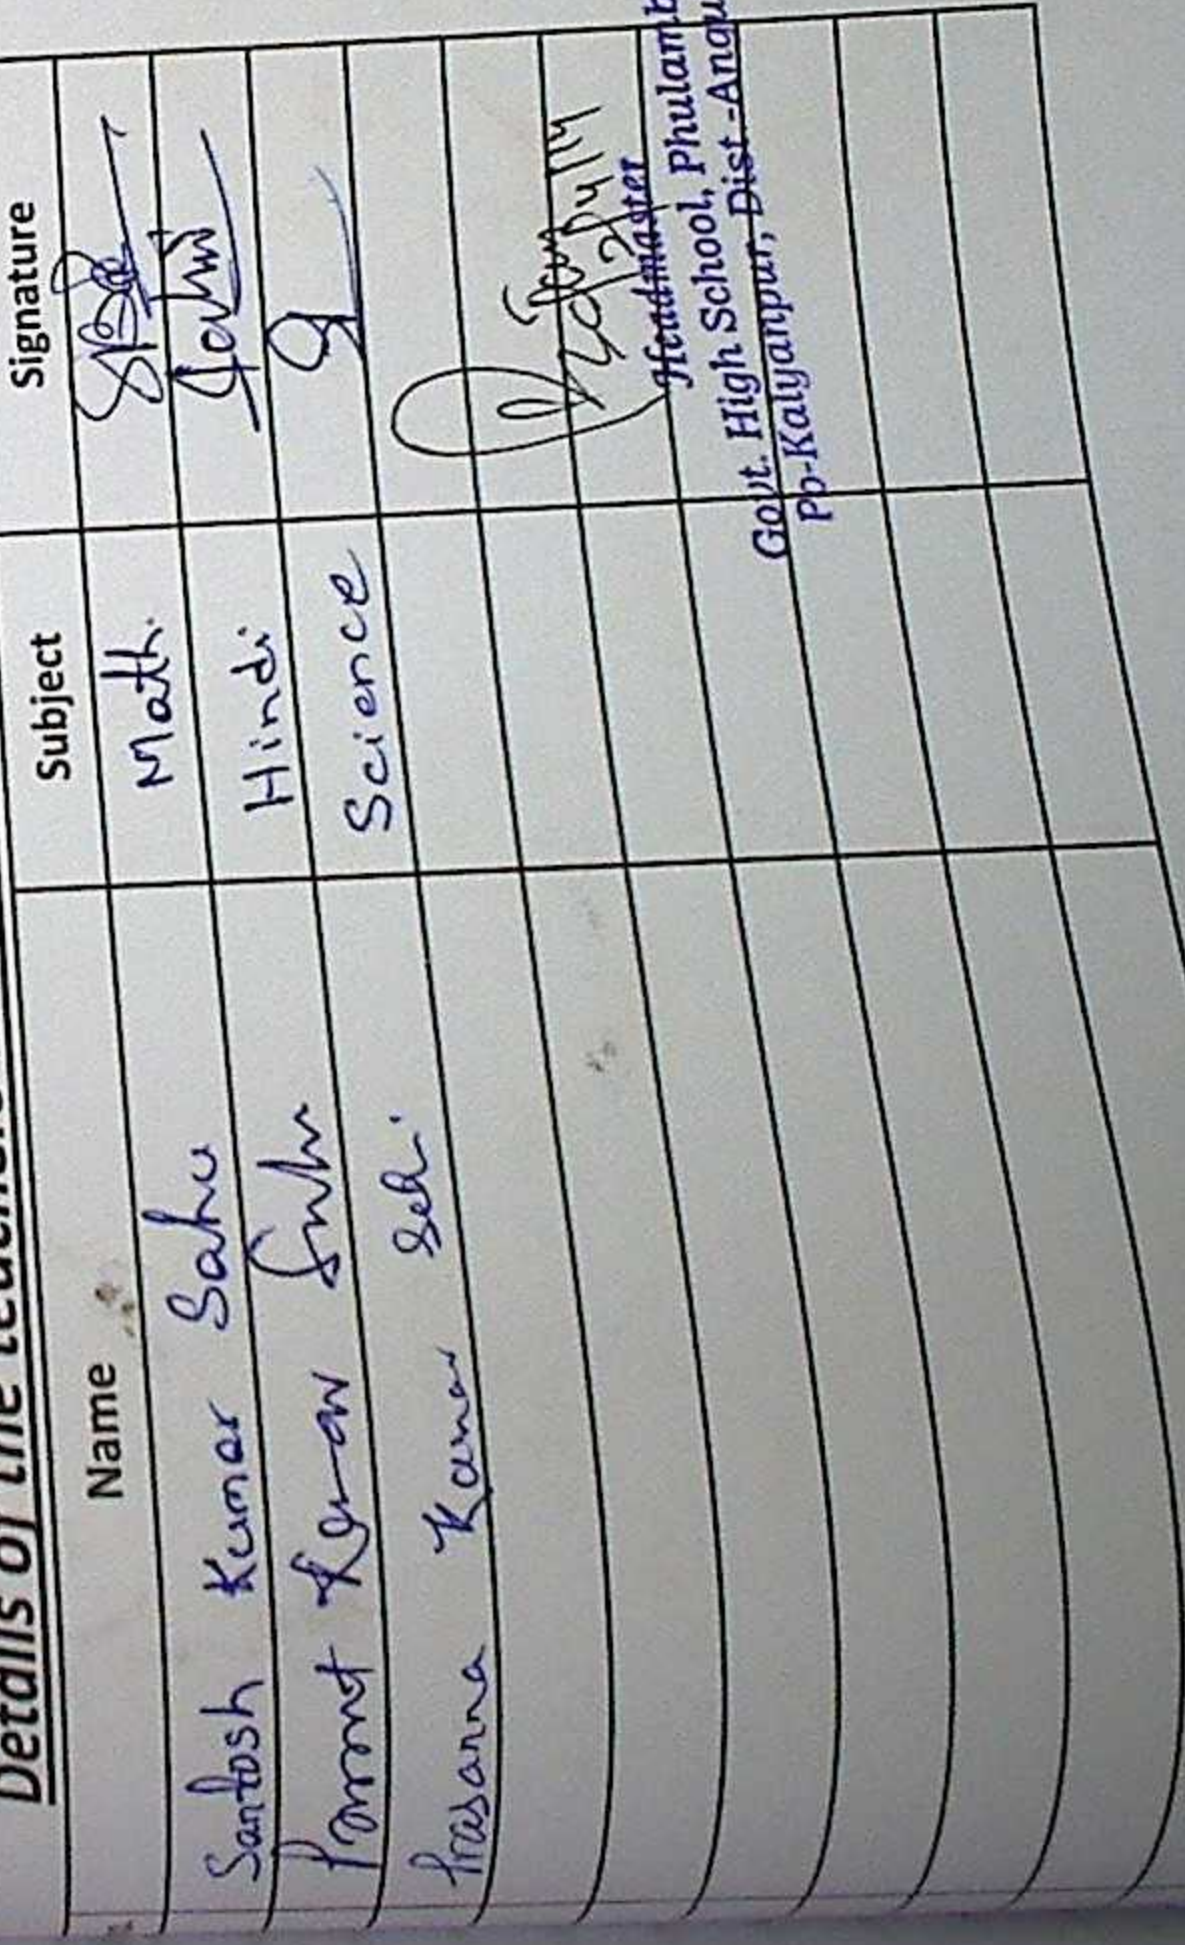 Details of the
Name Subject Signature
Santosh Kumar Sahu Math.
Kumar Hindi.
Prasanna Kumar Science
Headmaster
Govt. High School, Phulamb
Po-Kalyanpur, Dist.-Angu